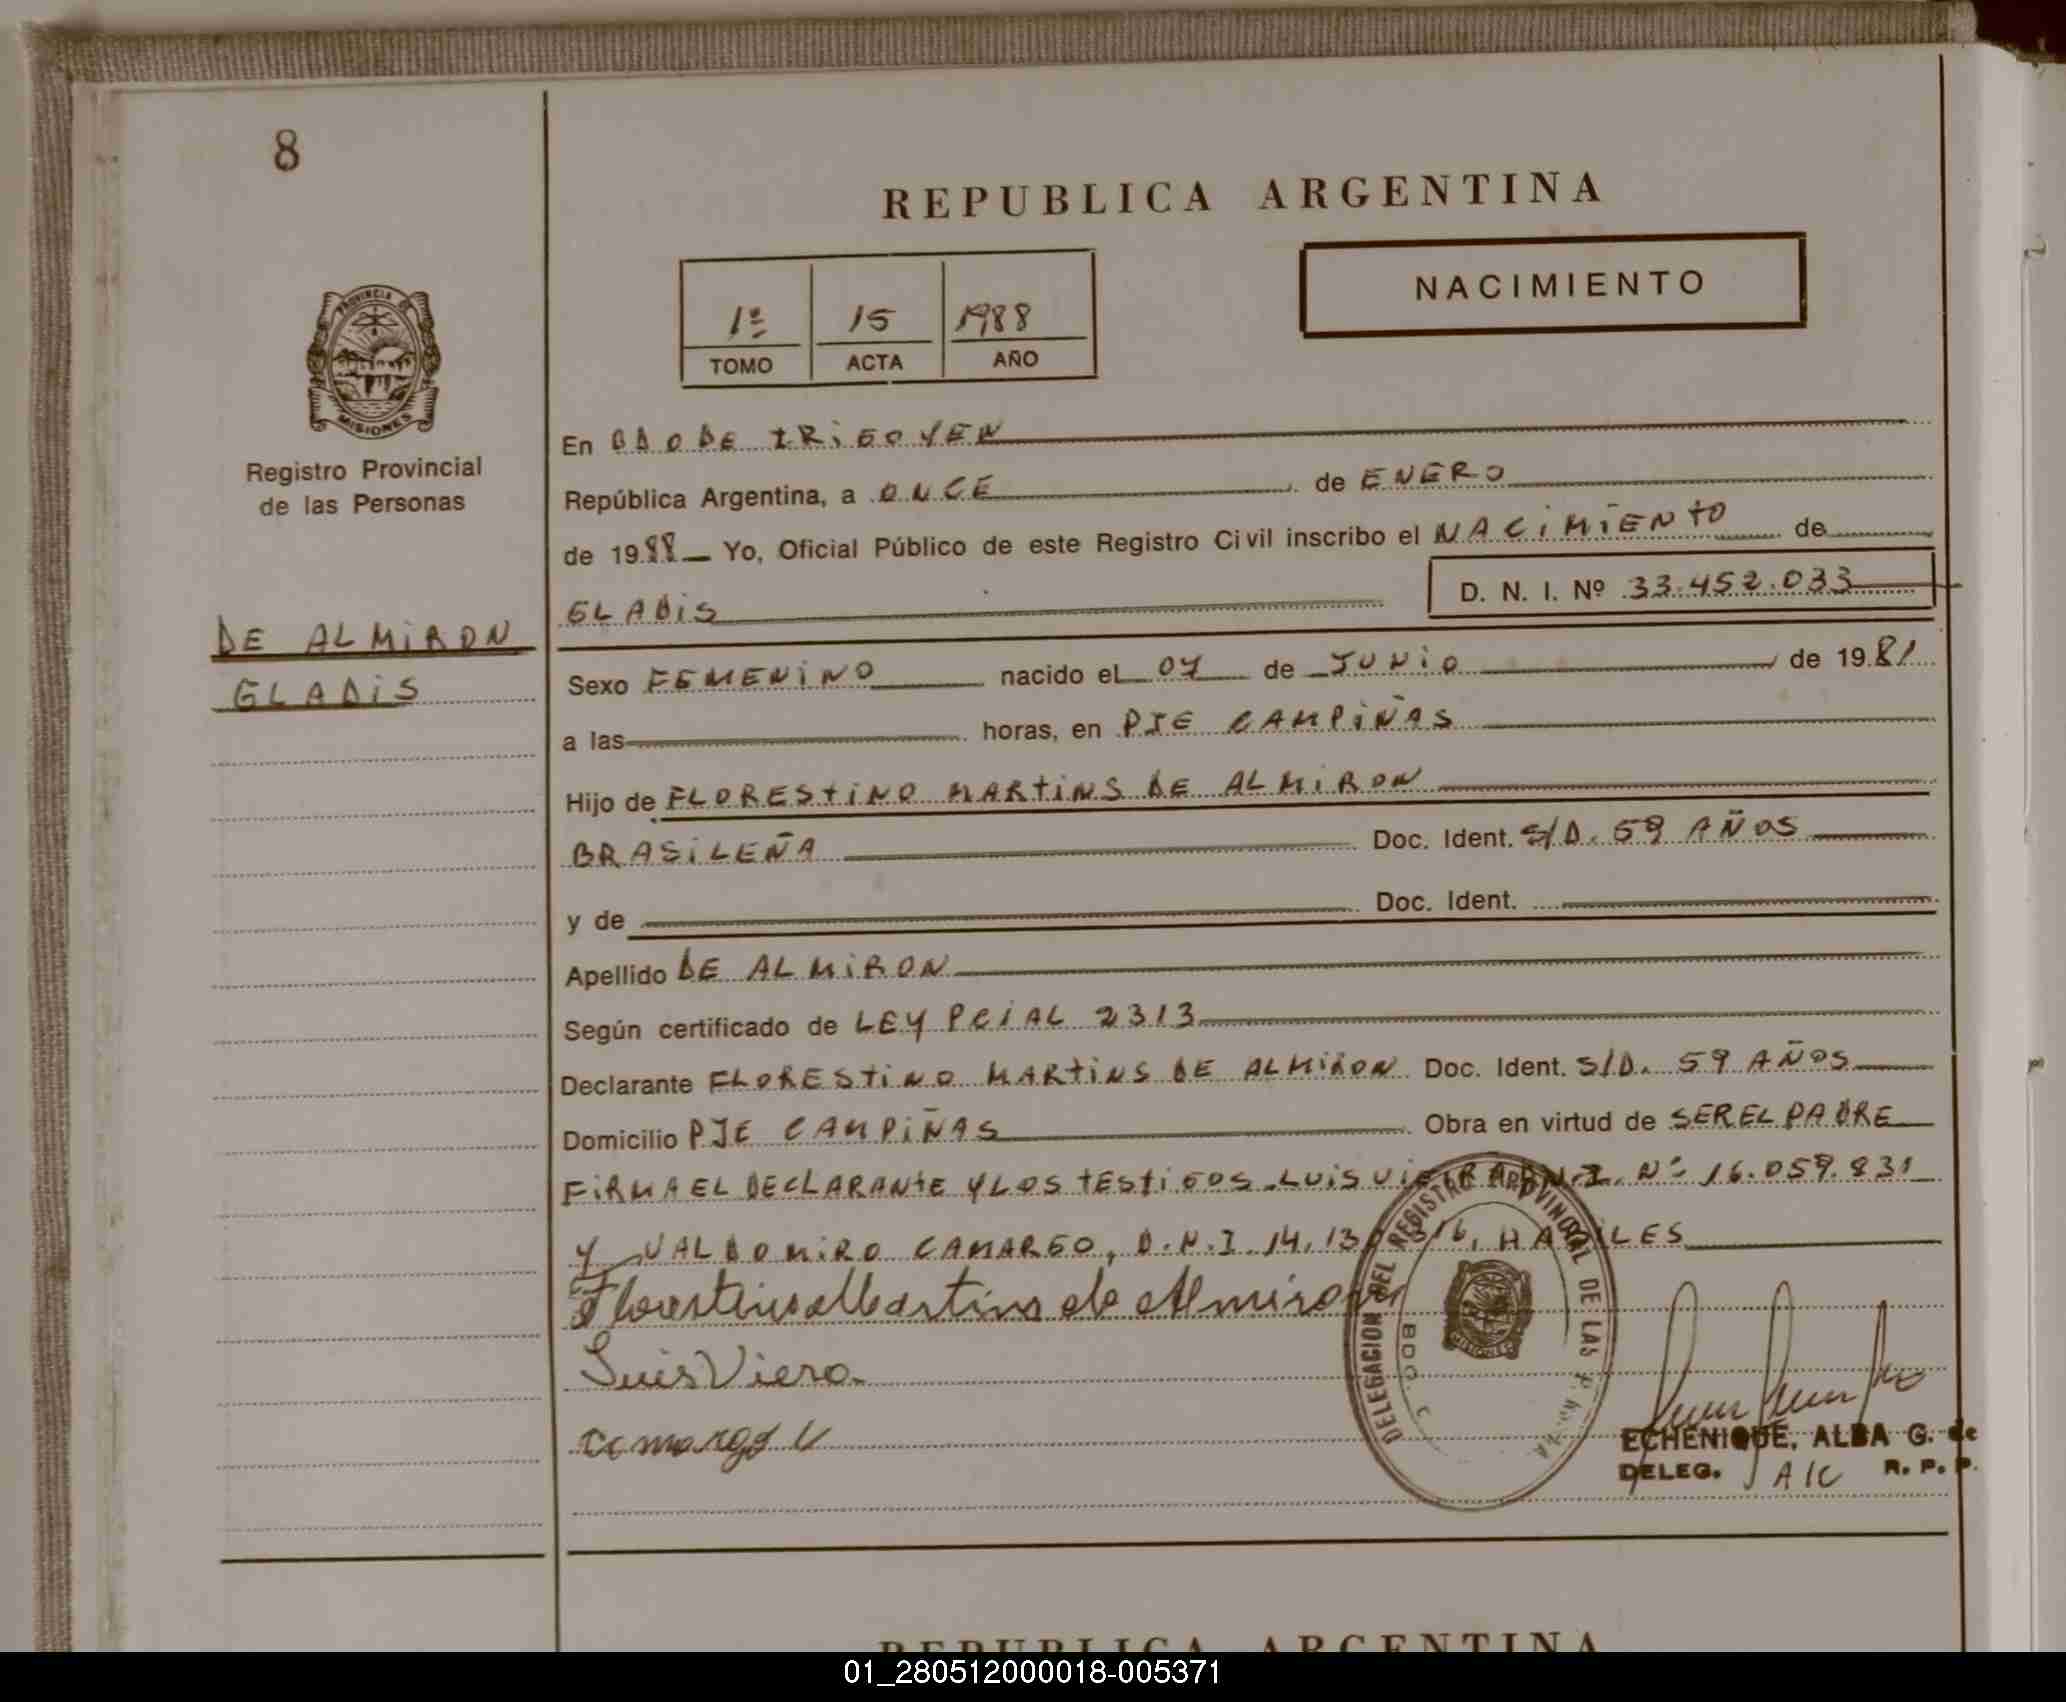 8
REPUBLICA ARGENTINA
NACIMIENTO
1º 15 1988
TOMO ACTA AÑO
PROVINCIA DE
MISIONES
Registro Provincial
de las Personas
DE ALMIRON
GLADIS
En BDO DE IRIGOYEN
República Argentina, a ONCE de ENERO
de 1988 Yo, Oficial Público de este Registro Civil inscribo el NACIMIENTO de
GLADIS D. N. I. Nº 33.452.033
Sexo FEMENINO nacido el 07 de JUNIO de 1981
a las horas, en PJE CAMPIÑAS
Hijo de FLORESTINO MARTINS DE ALMIRON
BRASILEÑA Doc. Ident. S/D. 59 AÑOS
y de Doc. Ident.
Apellido DE ALMIRON
Según certificado de LEY PCIAL 2313
Declarante FLORESTINO MARTINS DE ALMIRON Doc. Ident. S/D. 59 AÑOS
Domicilio PJE CAMPIÑAS Obra en virtud de SER EL PADRE
FIRMA EL DECLARANTE Y LOS TESTIGOS LUIS VIERA D.N.I. Nº 16.059.831
Y VALDOMIRO CAMARGO, D.N.I. HABILES
Florestino Martins de Almiron
Luis Viera
Camargo V
DELEGACION DEL REGISTRO PROVINCIAL DE LAS
MISIONES
ECHENIQUE, ALBA G. de
DELEG. A/C R. P. P.
REPUBLICA ARGENTINA
01_280512000018-005371